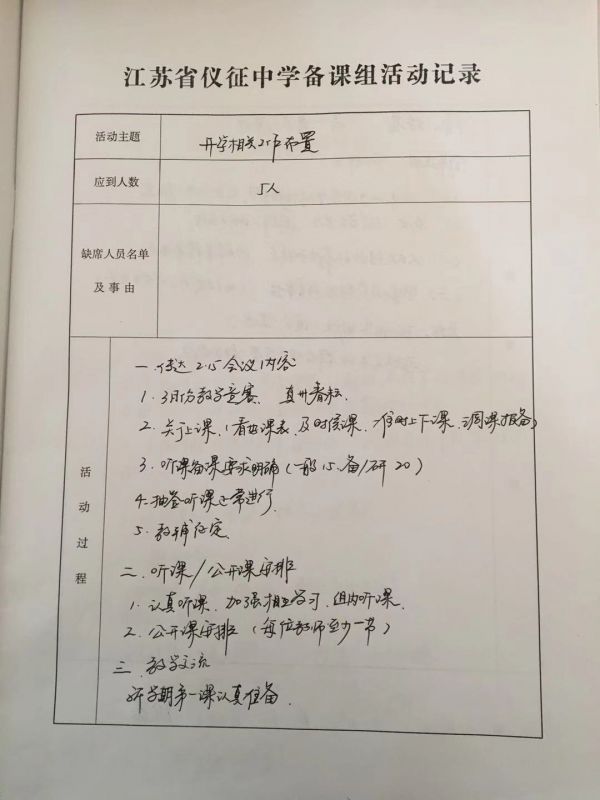 江苏省仪征中学备课组活动记录
活动主题
开学相关工作布置
应到人数
5人
缺席人员名单
及事由
活动过程
一、传达2.15会议内容
1. 3月份教学竞赛、真州春秋
2. 关于上课，（看好课表、及时候课、准时上下课、调课报备）
3. 听课备课要求明确（一般15、备/研20）
4. 抽签听课正常进行
5. 教辅征定
二、听课/公开课安排
1. 认真听课、加强相互学习、组内听课
2. 公开课安排（每位教师至少一节）
三、教学交流
新学期第一课认真准备.